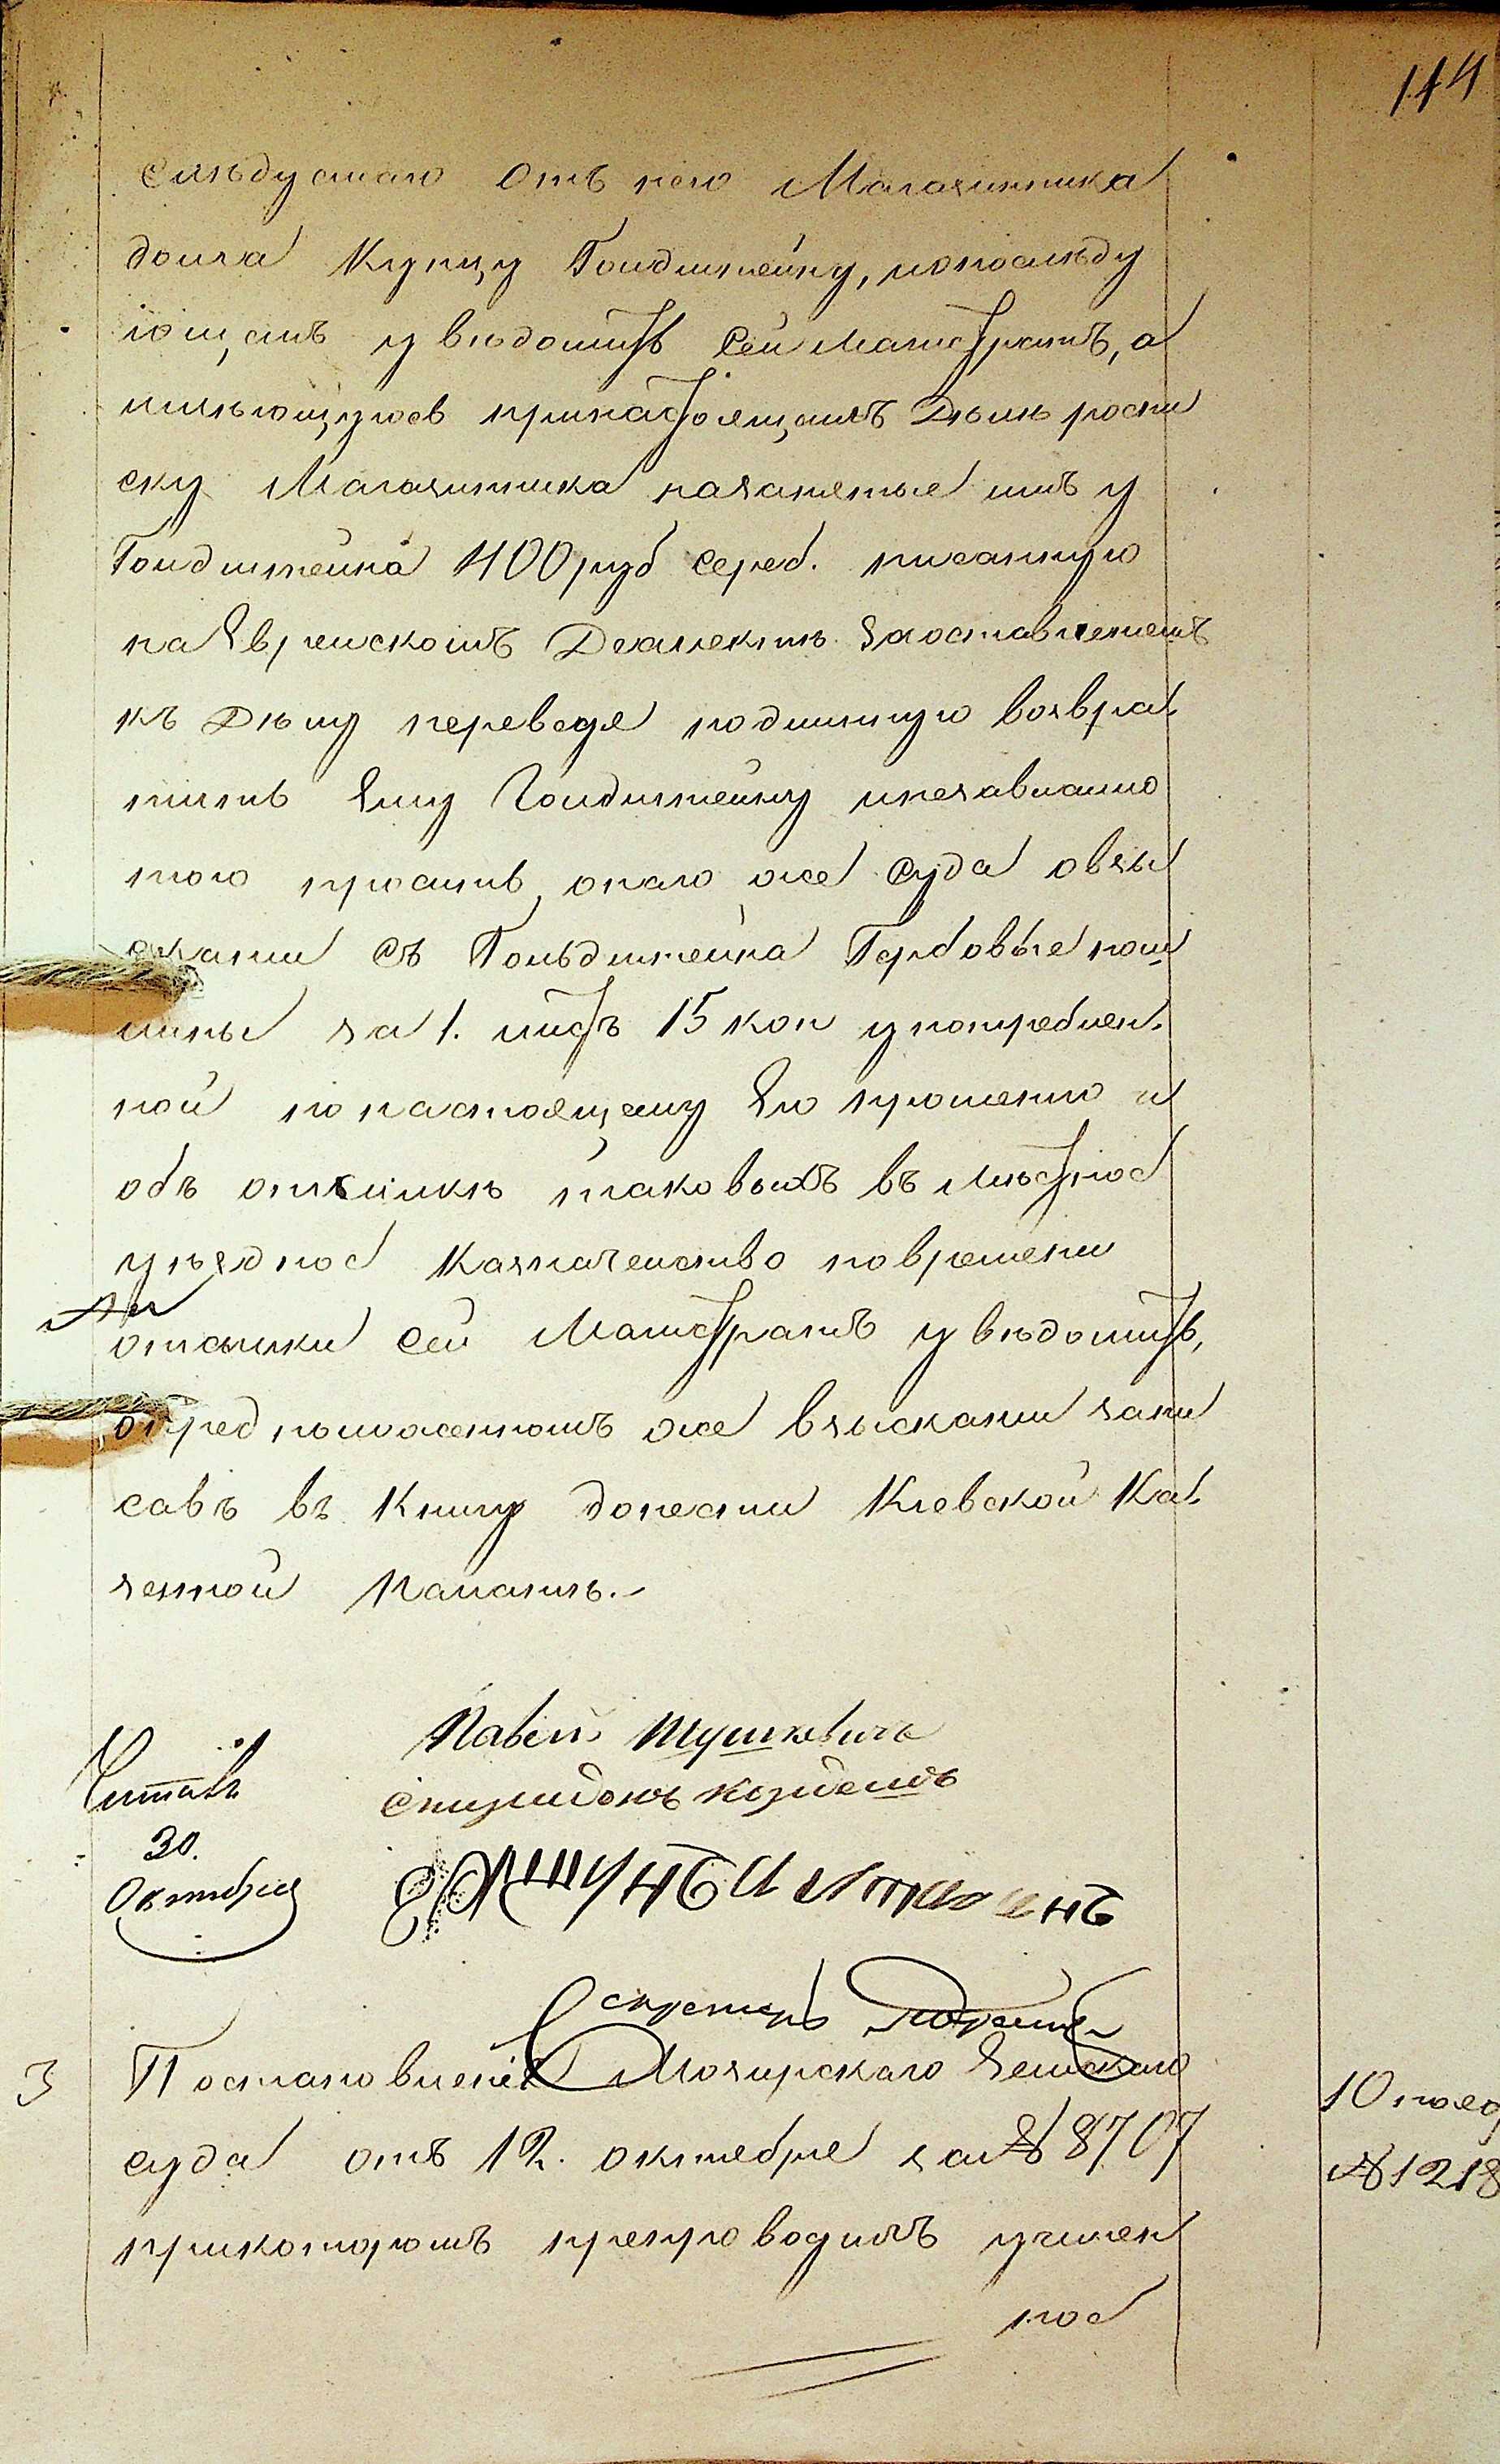 114
слѣдуемаго отъ него Магазинника
долга Купцу Гольдштейну, и о послѣду
ющемъ увѣдомить сей Магистратъ, а
имѣющуюсь при настоящемъ Дѣлѣ роспи
ску Магазинника на занятые имъ у
Гольдштейна 400 руб серед. писанную
на Еврейскомъ Деалектѣ за оставленіемъ
къ Дѣлу переводя подлинную возвра-
тить Ему Гольдштейну и независимо
того просить онаго же Суда о взы
сканіи съ Гольдштейна Гербовые пош
лины за 1. листъ 15 коп употреблен-
ной по настоящему Его прошенію и
объ отсылкѣ таковыхъ въ мѣстное
уѣздное Казначейство по времени
отсылки сей Магистратъ увѣдомить,
о предположенномъ же взысканіи запи
савъ въ Книгу донести Кіевской Ка-
зенной Палатѣ.-
Павелъ Тушкевичь
Спиридонъ
Читалъ
30.
Октября
Секретарь
3 Постановленіе Мозырского Земскаго
суда отъ 12. октября за № 8707
при которомъ препроводилъ учинен
ное
10
№ 1218